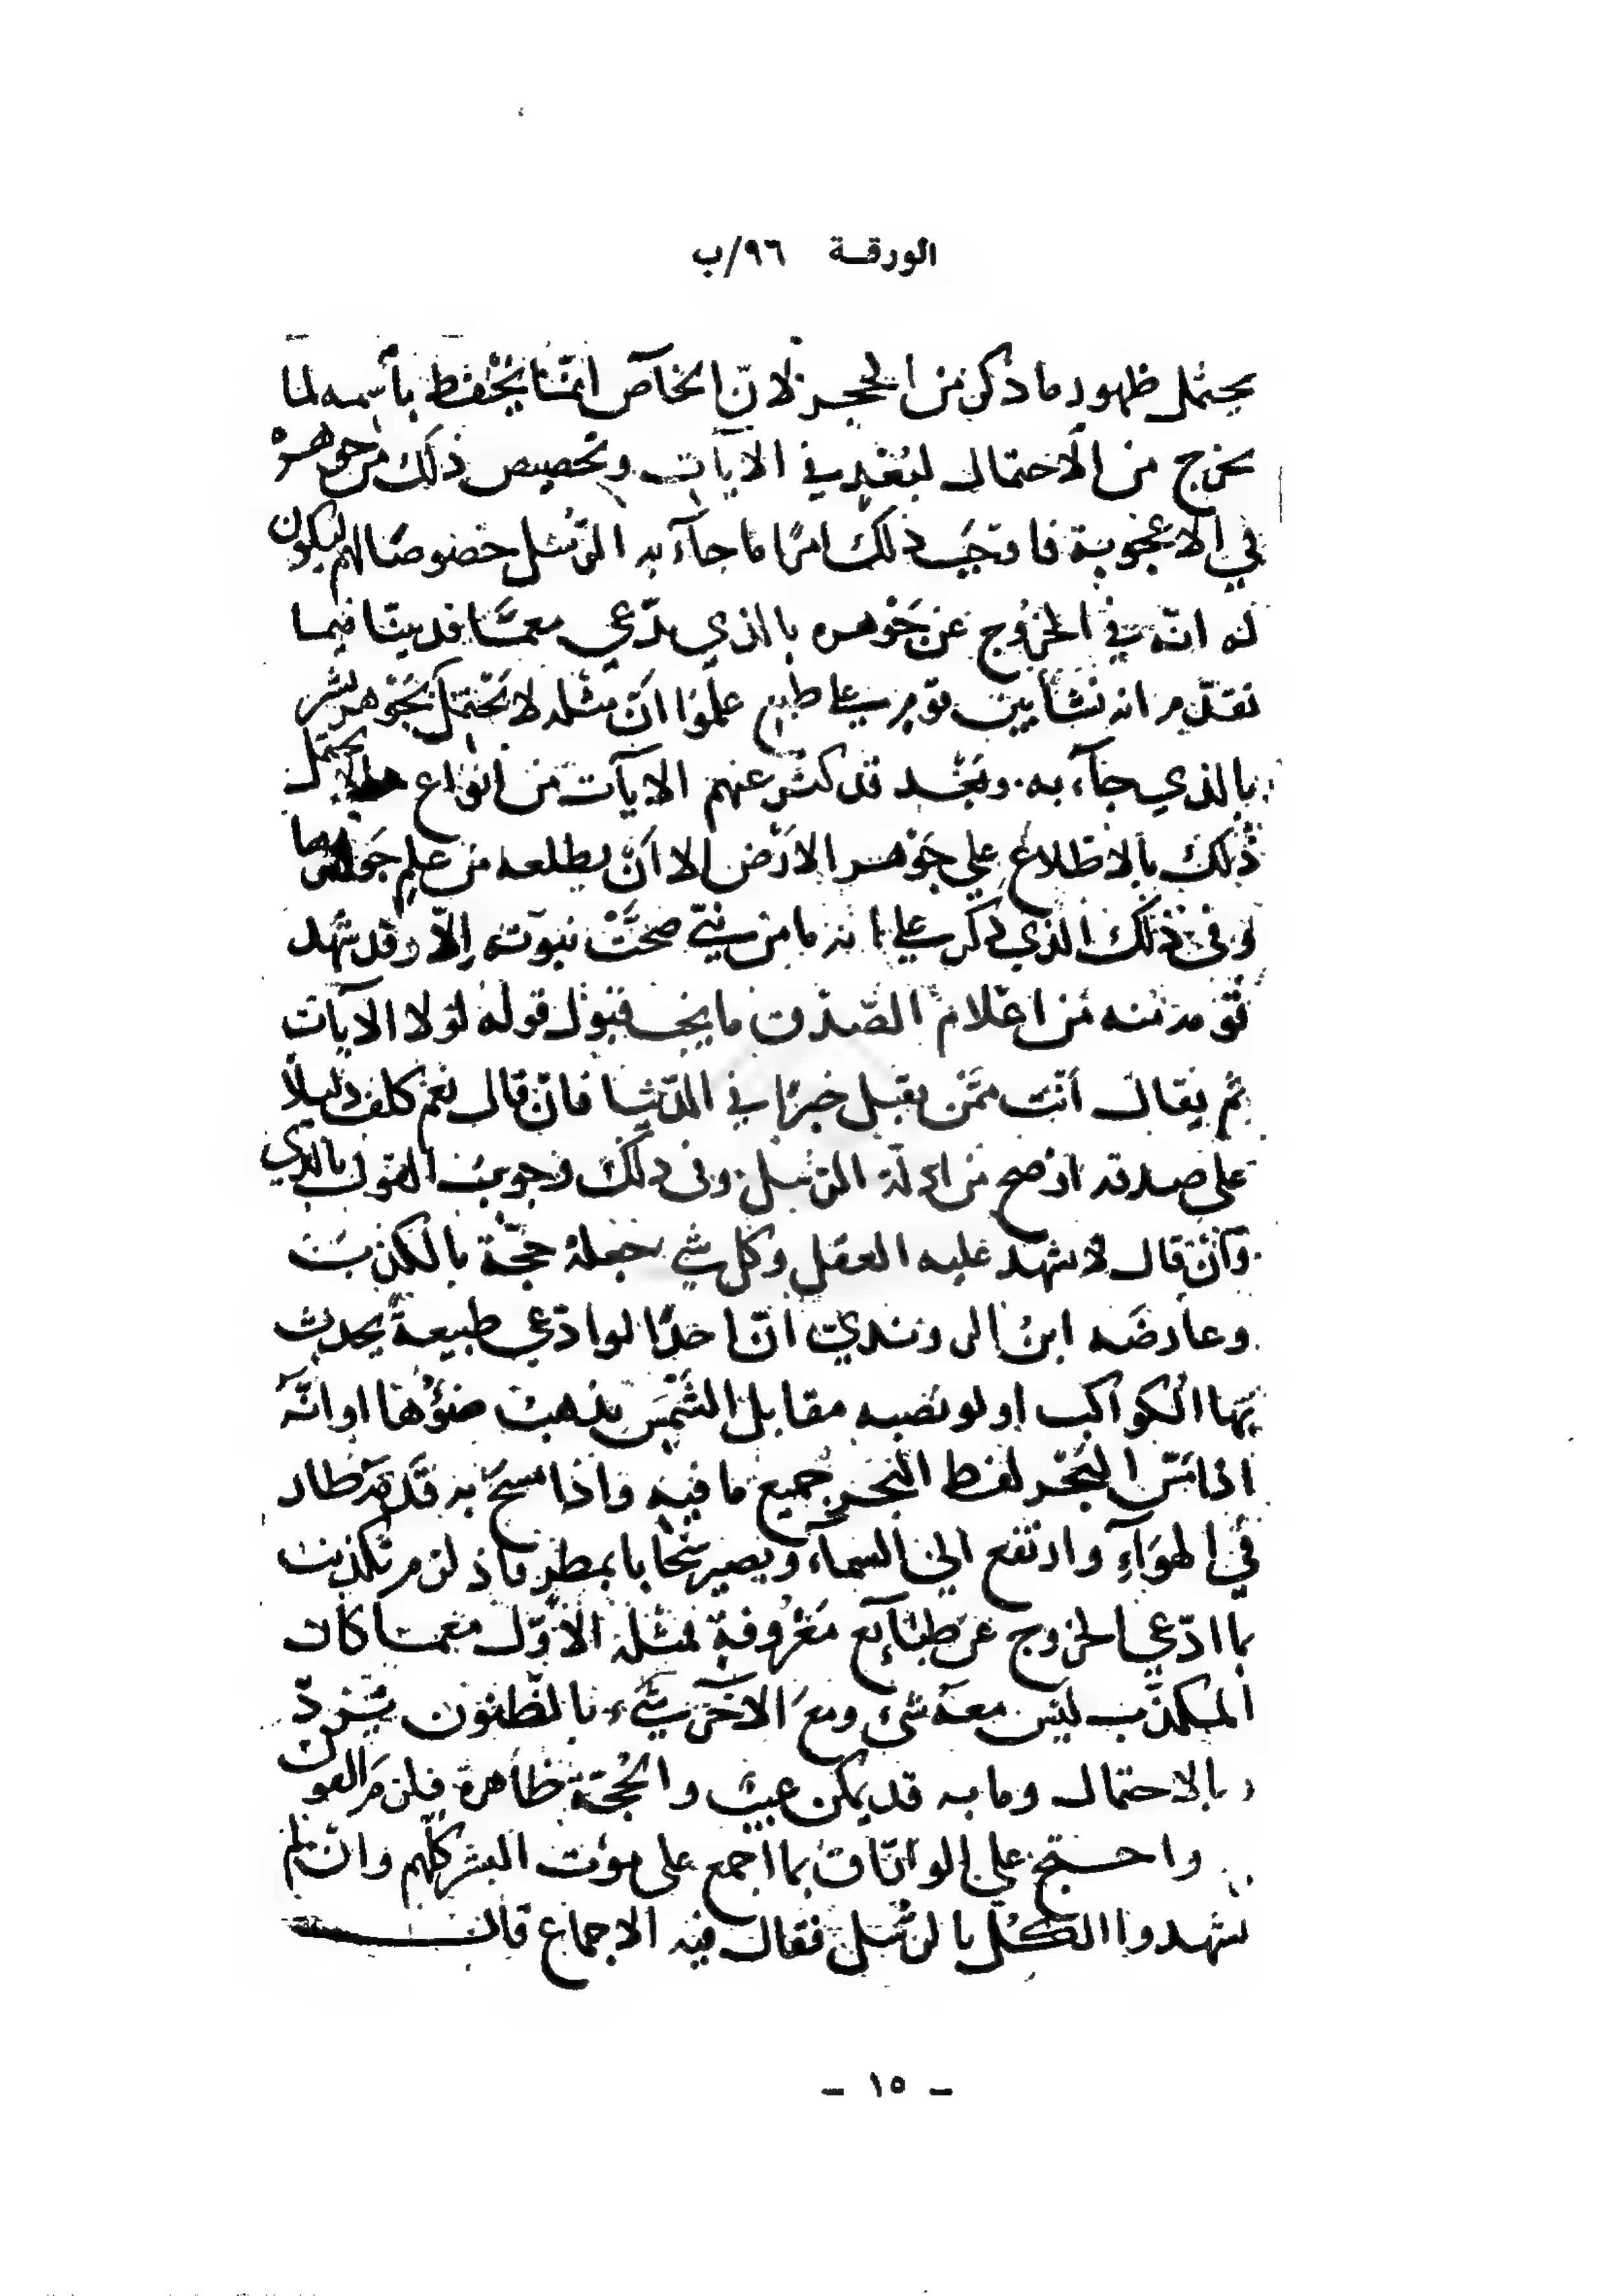 الورقة ٩٦/ب
يحتمل ظهور ما ذكر من الحجر لانّ الخاصّ انما يُحْفظ بأسمه لما
يخرج من الاحتمال لبُعْدٍ في الآيات وتخصيص ذلك من جوهره
في الاعجوبة فاوجَب ذلك امرًا ما جآء به الرّسُل خصُوصًا لهم ليكون
له انّه في الخرُوج عن جَوْهره بالذي يدّعي معما قد بينّا فيما
تقدّم انه نشأ بين قوم على طبع علموا انّ مثله لا تحتمل بجوْهر بشر
بالذي جآء به ونجد قد كثر عنهم الآيات من انواع يحتمل
ذلك بالاطّلاع على جَوْهر الارْض الا انّ يطلعه من علم جواهرها
وفي ذلك الذي ذكر على انه ما من نبيّ صحّتْ نبوّته إلاّ وقد شهد
قومه منه من اعْلام الصّدق ما يجب قبول قوله لوْلا الآيات
ثم يقال أنْت ممّن يقبل خبرًا في الدّنيا فانْ قال نعم كلف دليلاً
على صدقه اوْضح من ادلّة الرّسل وفي ذلك وجوبُ القول بالذي
وانْ قال لا شهد عليه العقل وكل شي جعله حجّة بالكذب
وعارضَه ابنُ الروندي انّ احدًا لو ادّعى طبيعةً يحدث
بها الكواكب او لو نصبه مقابل الشمْس يذهبُ ضوْؤُها او انّه
اذا مَسّ البَحْر لفظ البحر جميع ما فيه واذا مسح به قدَمه طار
في الهوَآءِ وارتفع الى السمآء ويصير سَحَابا بمطر فاذ لزم تكذيب
بما ادّعى الخروج عن طبآئع مَعْرُوفةٍ لمثله الاوّل معما كان
المكذّب ليْس معه شئ ومع الآخر شئ بالظنون يتردّ
بالاحتمال وما به قد يمكن عبث والحُجّة ظاهرة فلزمَ القول
واحتج على الورّاق بما اجمع على موْت البشر كلّهم وان لم
يشهدوا الكُلّ بالرّسُل فقال فيه الاجماع قال
– ١٥ –